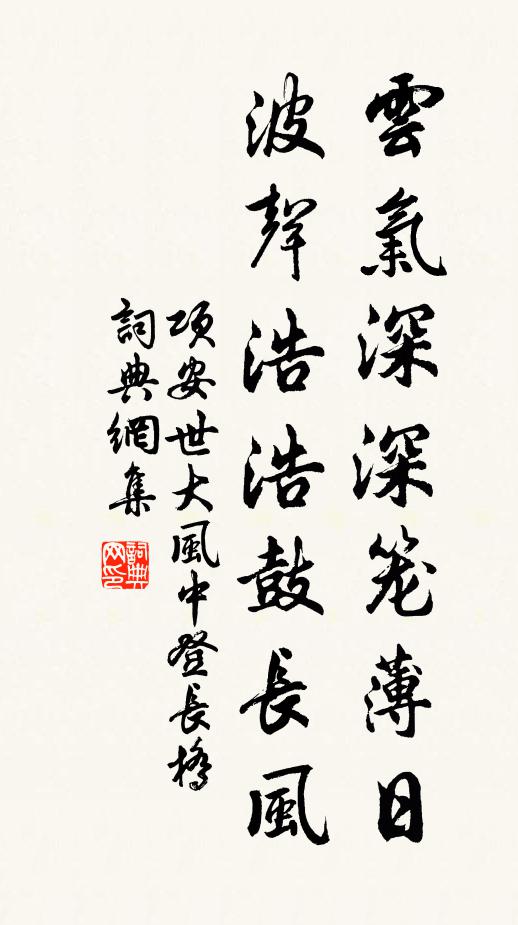 雲氣深深笼薄日
波聲浩浩鼓長風
项安世大風中登長橋
詞典網集
詞典网印